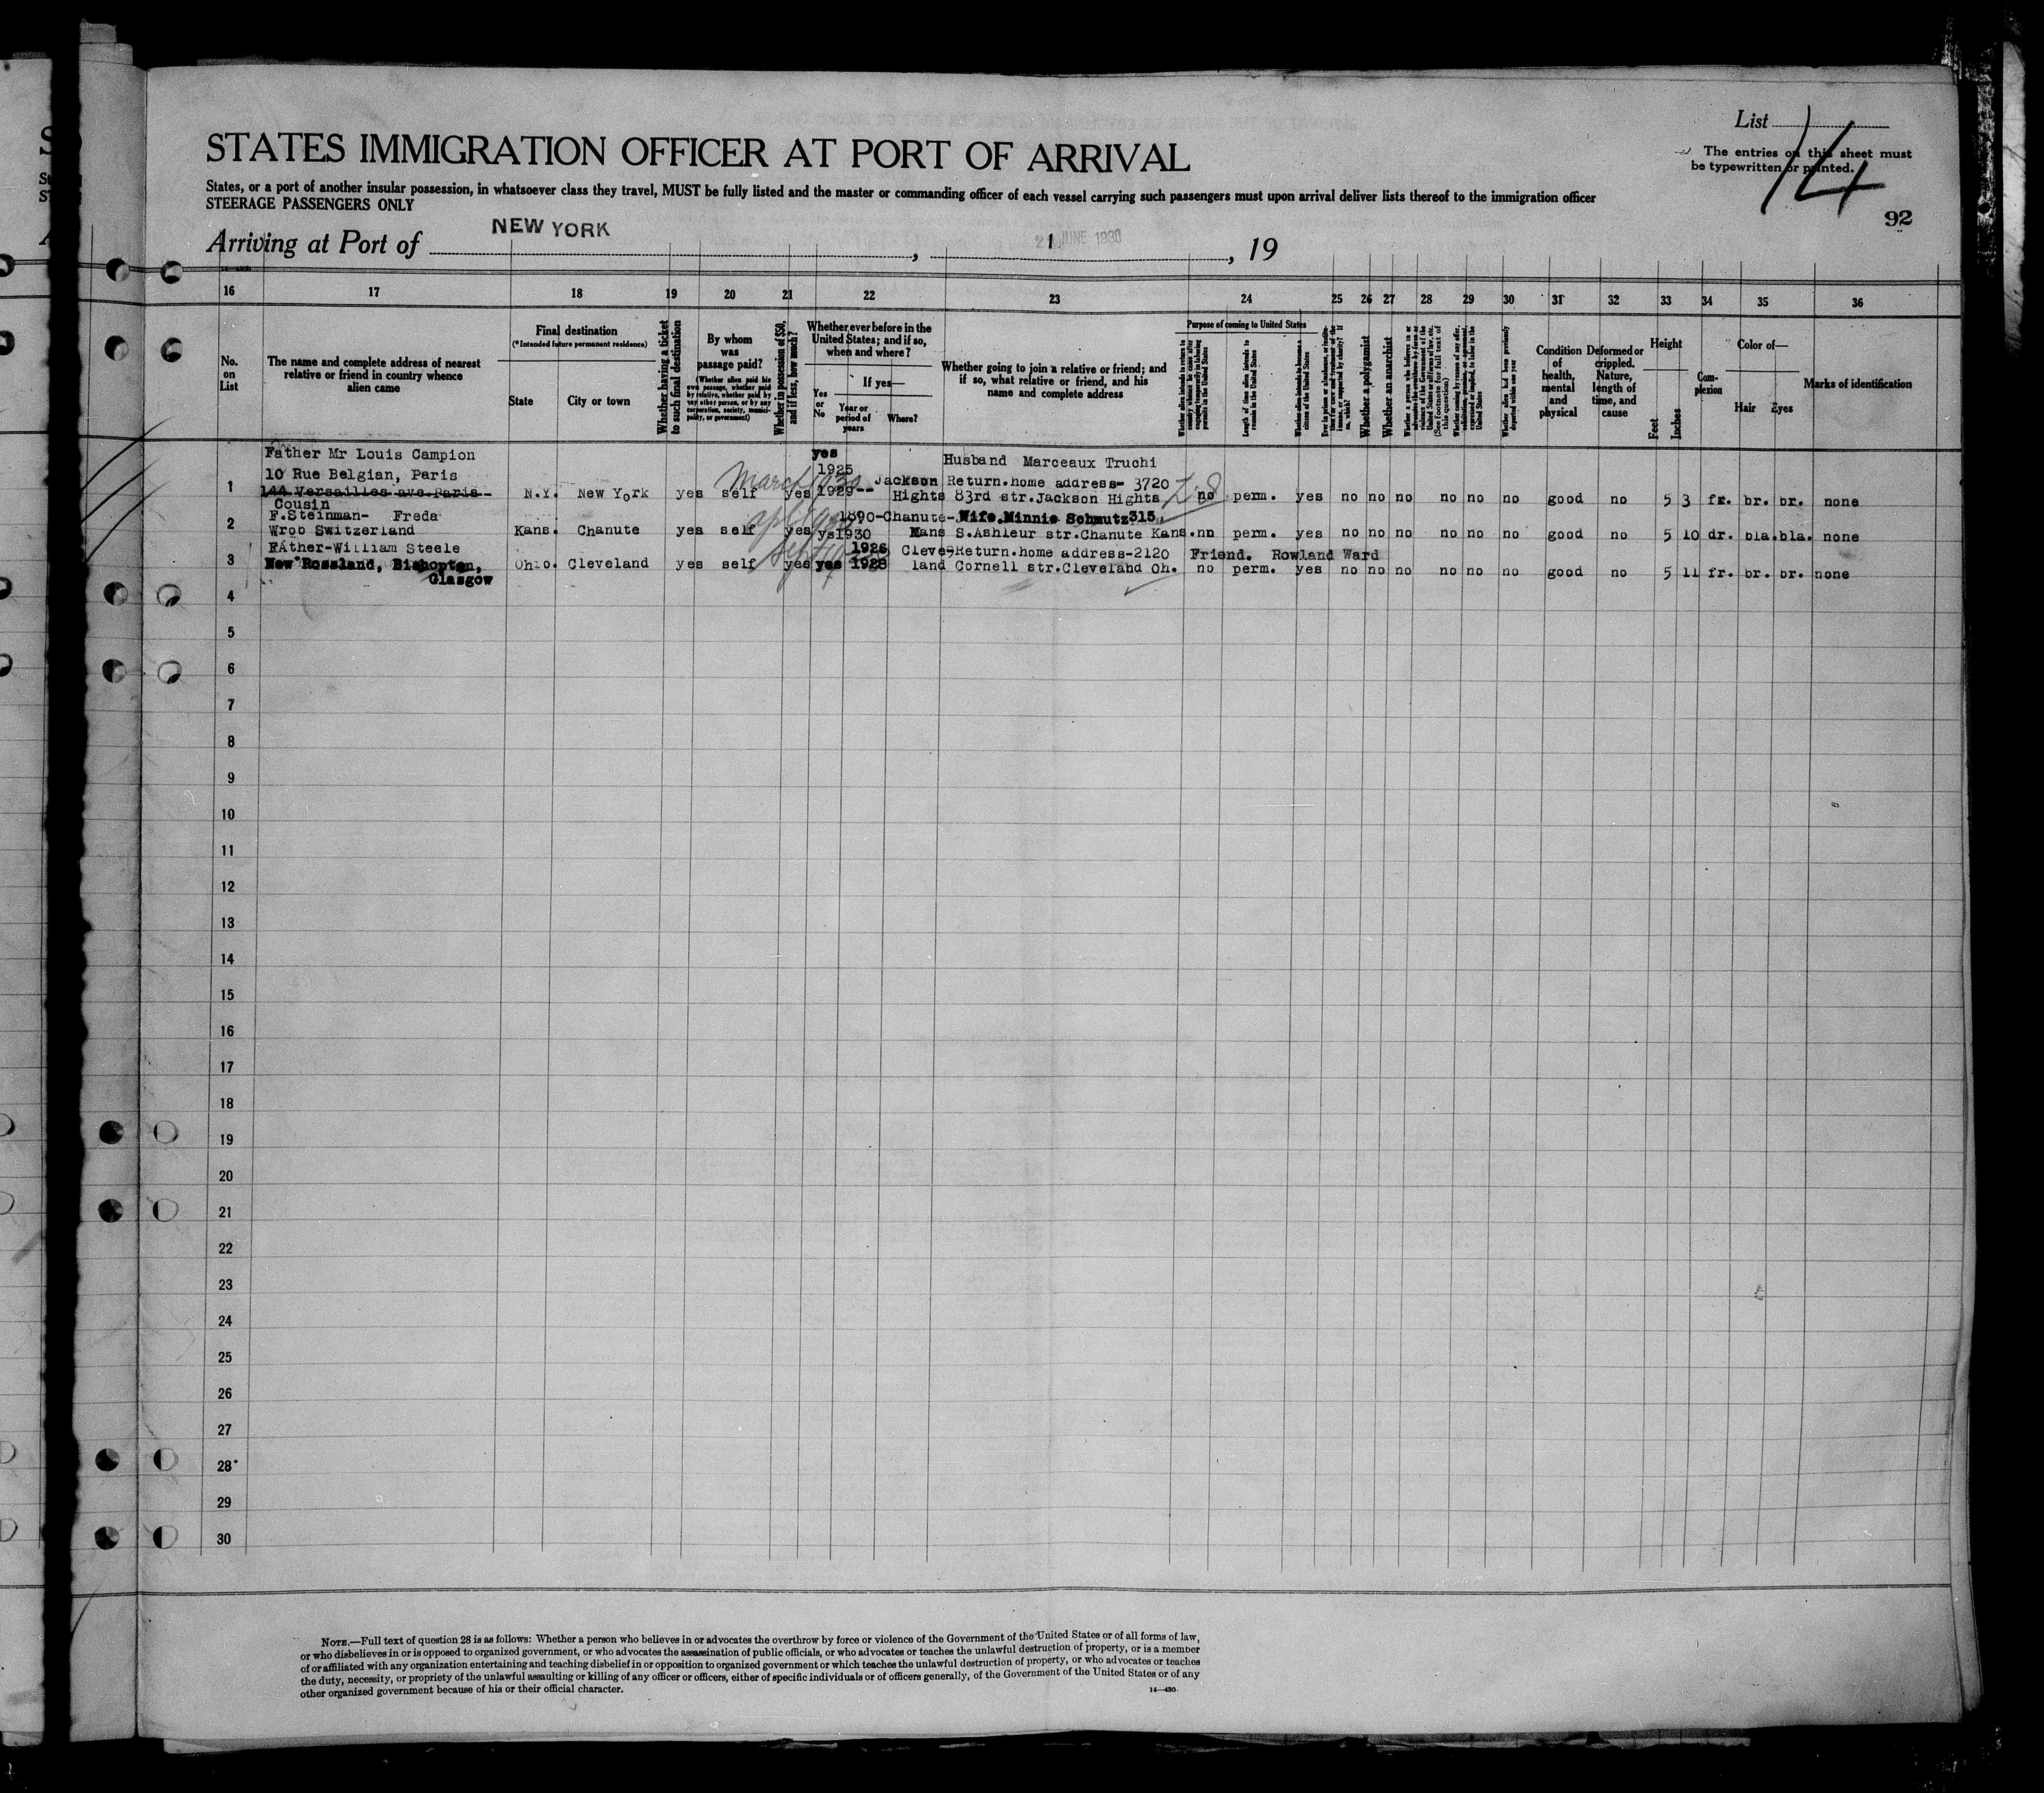 List 14
STATES IMMIGRATION OFFICER AT PORT OF ARRIVAL
The entries on this sheet must
be typewritten or printed.
States, or a port of another insular possession, in whatsoever class they travel, MUST be fully listed and the master or commanding officer of each vessel carrying such passengers must upon arrival deliver lists thereof to the immigration officer
STEERAGE PASSENGERS ONLY
92
Arriving at Port of NEW YORK, JUNE 1930, 19
16 17 18 19 20 21 22 23 24 25 26 27 28 29 30 31 32 33 34 35 36
No. on List
The name and complete address of nearest relative or friend in country whence alien came
Final destination
(*Intended future permanent residence)
State
City or town
Whether having a ticket to such final destination
By whom was passage paid?
(Whether alien paid his own passage, whether paid by relative, whether paid by any other person, or by any corporation, society, municipality, or government)
Whether in possession of $50, and if less, how much?
Whether ever before in the United States; and if so, when and where?
Yes or No
If yes—
Year or period of years
Where?
Whether going to join a relative or friend; and if so, what relative or friend, and his name and complete address
Purpose of coming to United States
Length of time alien intends to remain in the United States
Whether alien intends to become a citizen of the United States
Whether a polygamist
Whether an anarchist
(See footnote for full text of this question)
Whether alien had been previously deported within one year
Condition of health, mental and physical
Deformed or crippled. Nature, length of time, and cause
Height
Feet
Inches
Complexion
Color of—
Hair
Eyes
Marks of identification
Father Mr Louis Campion yes Husband Marceaux Truchi
10 Rue Belgian, Paris 1925 Jackson Return.home address- 3720
1 144 Versailles ave.Paris N.Y. New York yes self yes 1929-- Hights 83rd str.Jackson Hights no perm. yes no no no no no no good no 5 3 fr. br. br. none
March 1930
Cousin
F.Steinman- Freda 1890-Chanute-Wife.Minnie Schmutz 315,
2 Wrob Switzerland Kans. Chanute yes self yes ys1930 Kans S.Ashleur str.Chanute Kans.nn perm. yes no no no no no no good no 5 10 dr. bla.bla. none
FAther-William Steele 1926 Cleve-Return.home address-2120 Friend. Rowland Ward
3 New Rossland, Bishopton, Ohio. Cleveland yes self yes yes 1928 land Cornell str.Cleveland Oh. no perm. yes no no no no no no good no 5 11 fr. br. br. none
Glasgow
4
5
6
7
8
9
10
11
12
13
14
15
16
17
18
19
20
21
22
23
24
25
26
27
28
29
30
NOTE.—Full text of question 28 is as follows: Whether a person who believes in or advocates the overthrow by force or violence of the Government of the United States or of all forms of law,
or who disbelieves in or is opposed to organized government, or who advocates the assassination of public officials, or who advocates or teaches the unlawful destruction of property, or is a member
of or affiliated with any organization entertaining and teaching disbelief in or opposition to organized government or which teaches the unlawful destruction of property, or who advocates or teaches
the duty, necessity, or propriety of the unlawful assaulting or killing of any officer or officers, either of specific individuals or of officers generally, of the Government of the United States or of any
other organized government because of his or their official character.
14—430